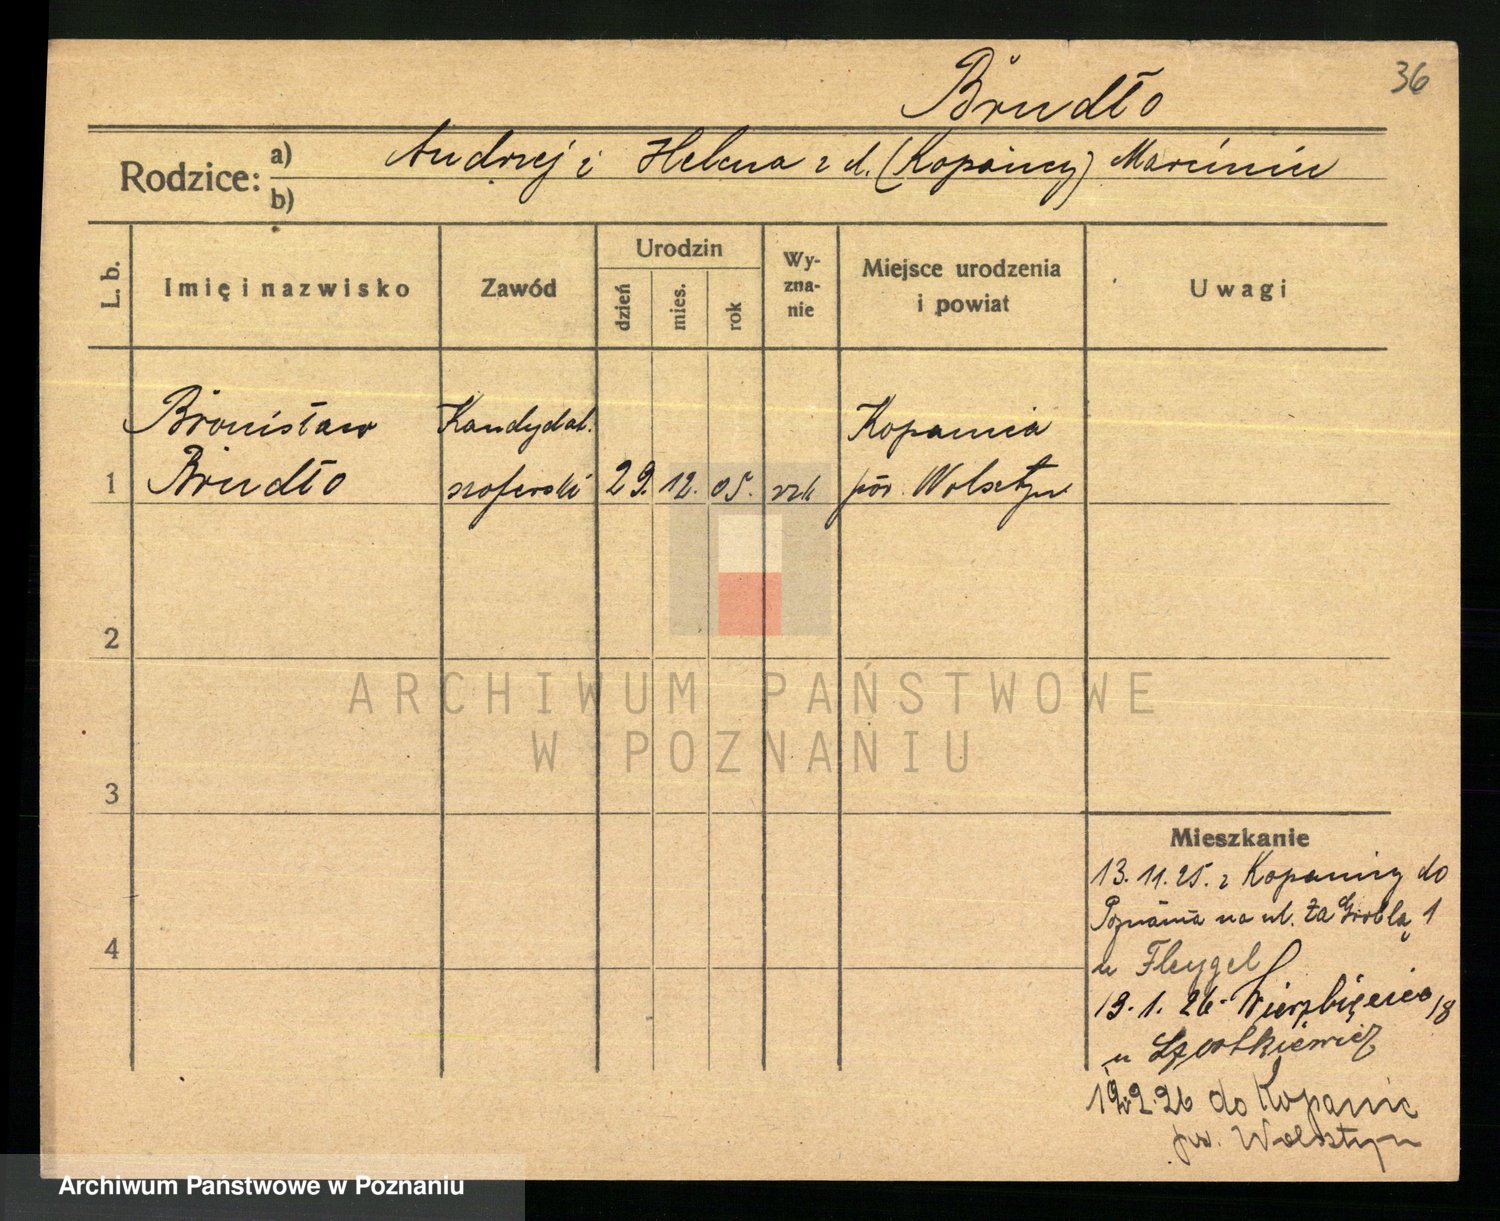 36
Brudło
Rodzice: a) Andrzej i Helena z d. (Kopaińcy) Marciniu
b)
L. b.
Imię i nazwisko
Zawód
Urodzin
dzień
mies.
rok
Wy-
zna-
nie
Miejsce urodzenia
i powiat
Uwagi
Bronisław Kandydat. Kopanica
1 Brudło szoferski 29. 12. 05. rzk pow. Wolsztyn
2
3
4
Mieszkanie
13.11.25. z Kopanicy do
Poznania na ul. Za Groblą 1
u Fleygel
19.1.26. Wierzbięcice 18
u
19.2.26 do Kopanic
pw. Wolsztyn
ARCHIWUM PAŃSTWOWE
W POZNANIU
Archiwum Państwowe w Poznaniu